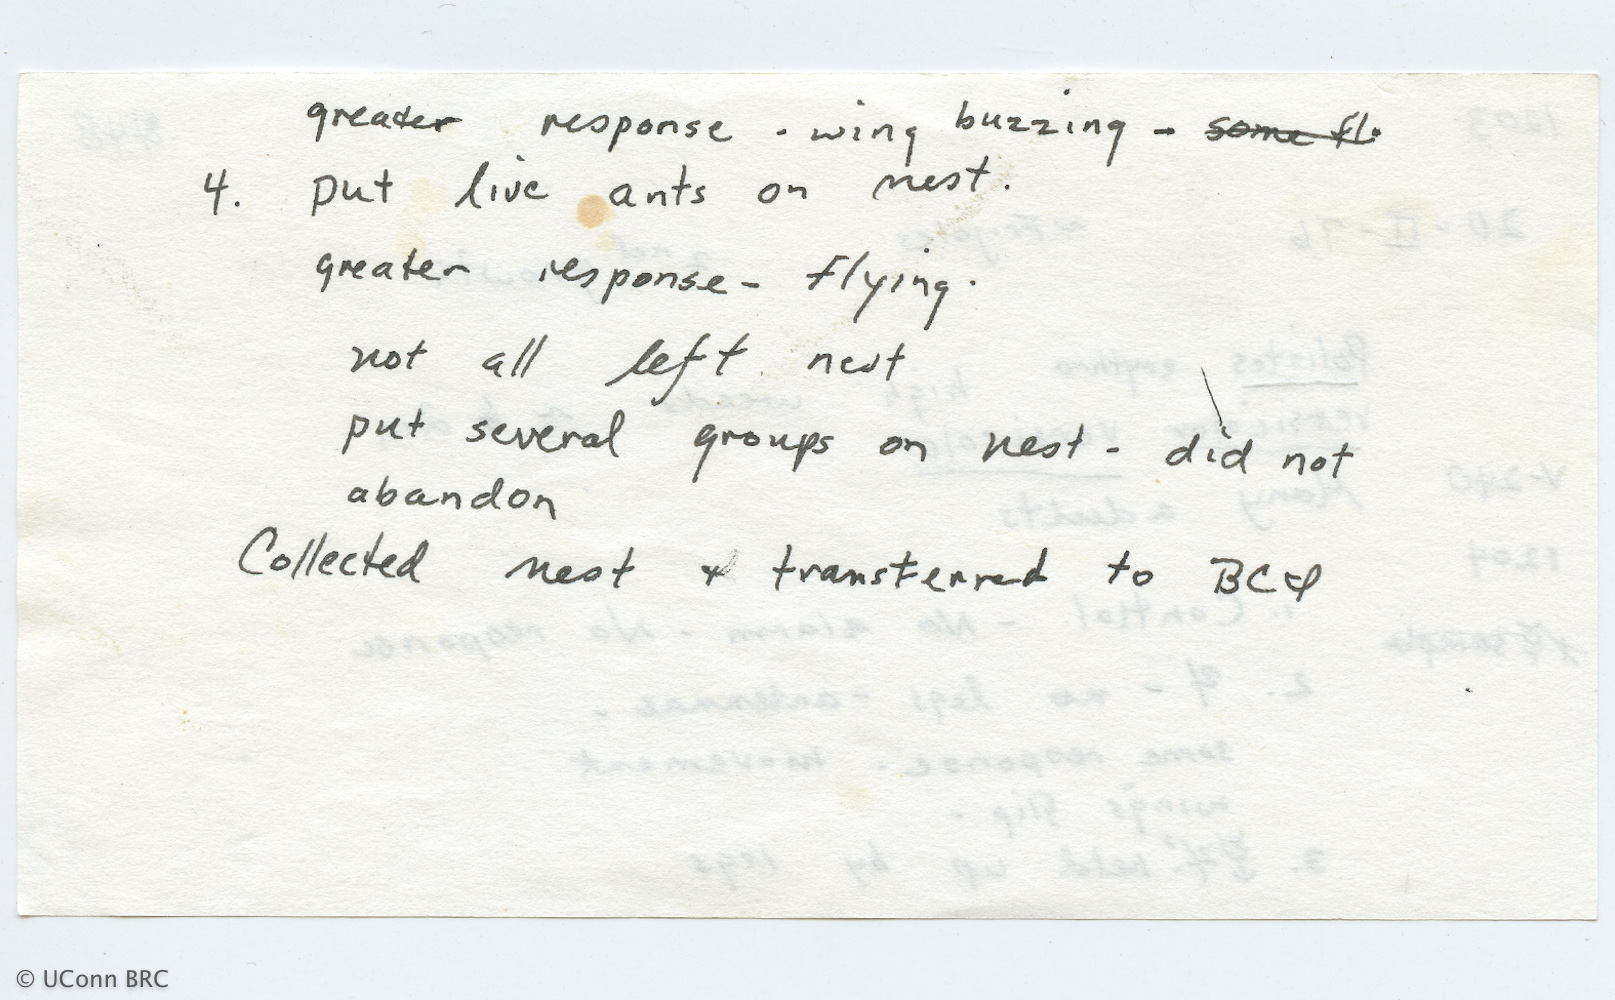 greater response - wing buzzing - some fl.
4. put live ants on nest.
greater response - flying.
not all left nest
put several groups on nest - did not
abandon
Collected nest & transferred to
© UConn BRC